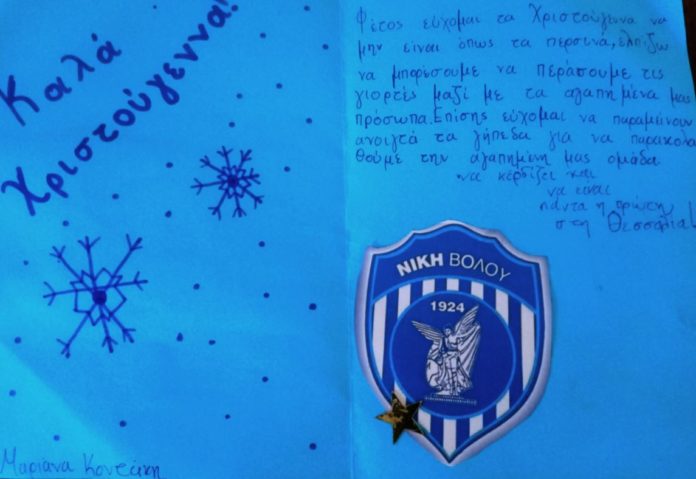 Καλά
Χριστούγεννα!
Μαριάνα Κοντάκη
Φέτος εύχομαι τα Χριστούγεννα να
μην είναι όπως τα περσινά, ελπίζω
να μπορέσουμε να περάσουμε τις
γιορτές μαζί με τα αγαπημένα μας
πρόσωπα. Επίσης εύχομαι να παραμείνουν
ανοιχτά τα γήπεδα για να παρακολο
θούμε την αγαπημένη μας ομάδα
να κερδίζει και
να είναι
πάντα η πρώτη
στη Θεσσαλία!
ΝΙΚΗ ΒΟΛΟΥ
1924